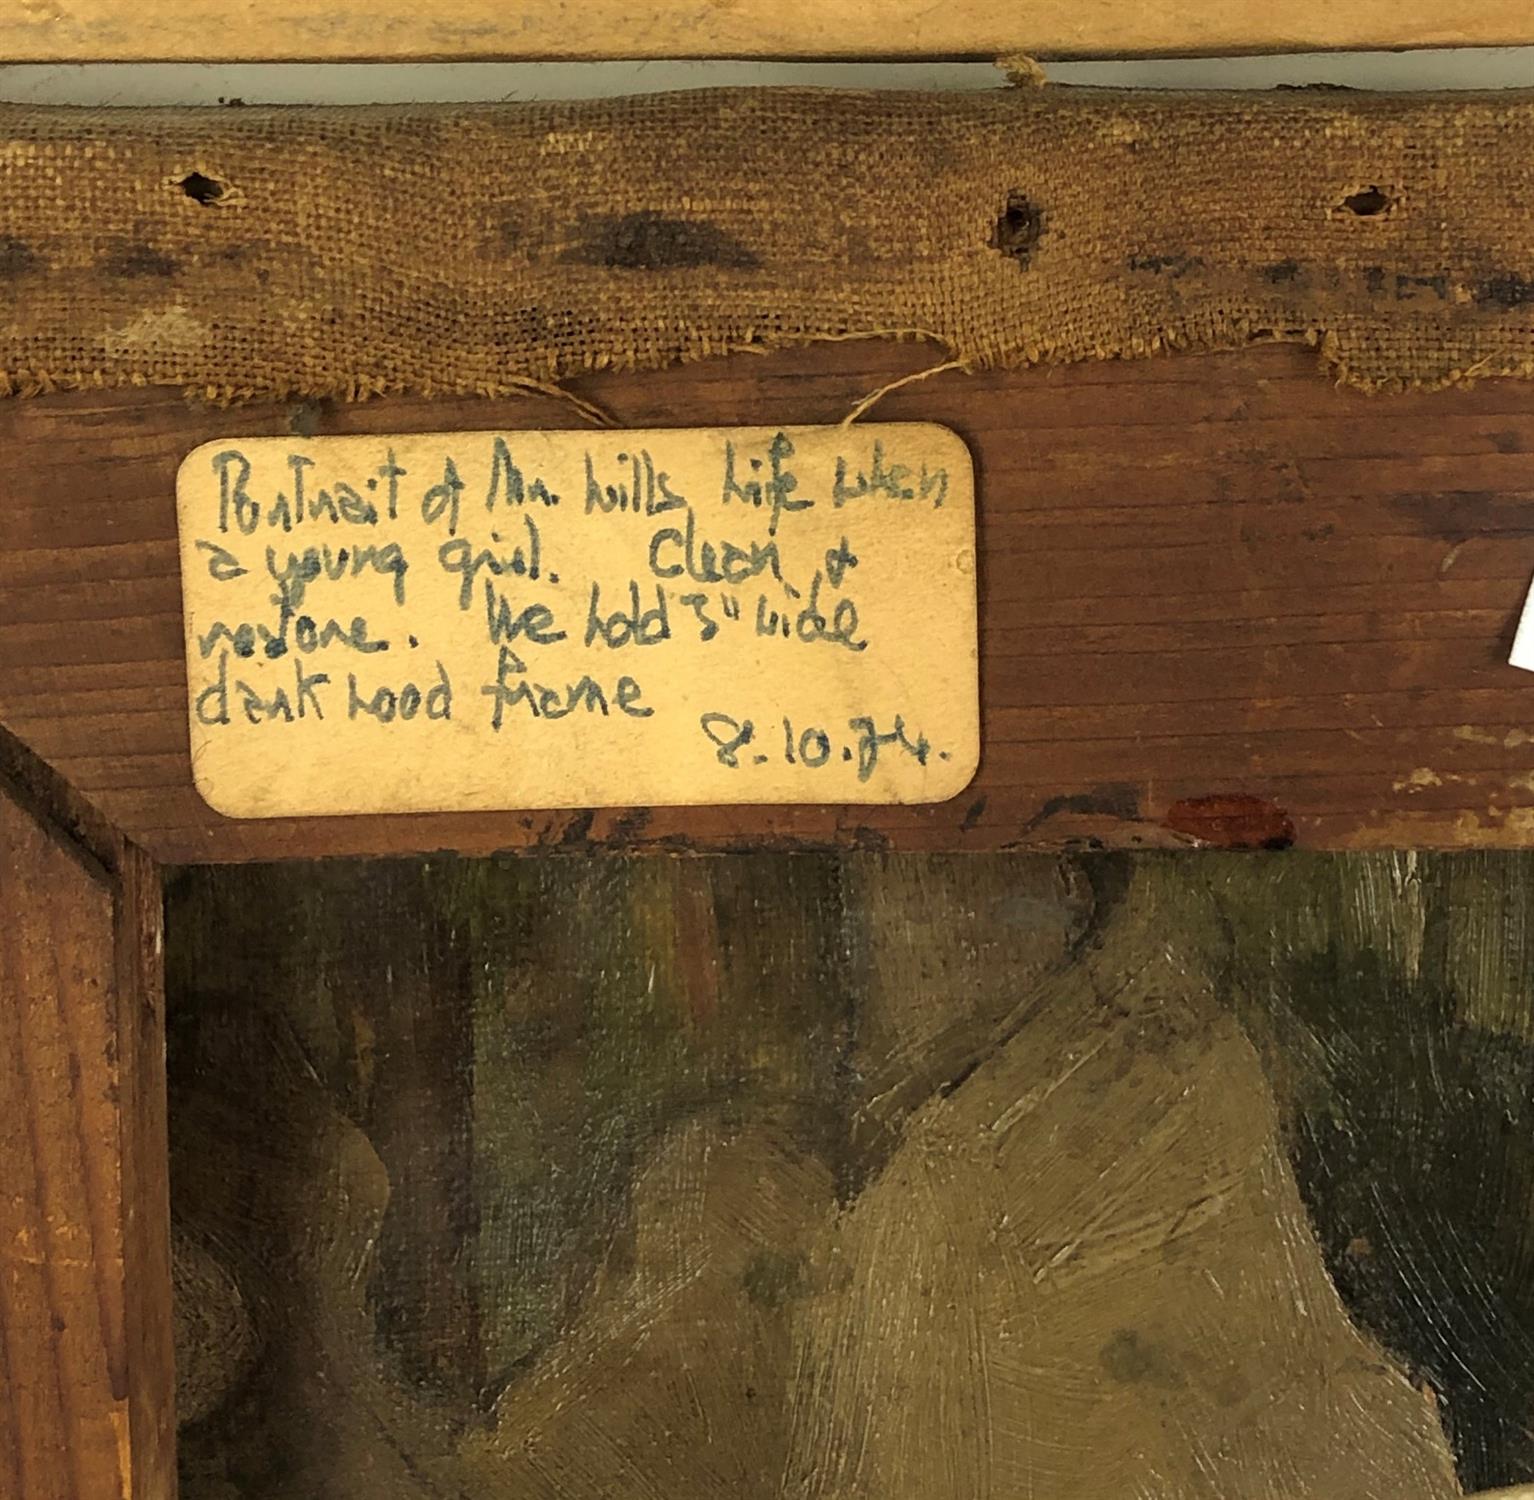 Portrait of Mr. Wills Wife when
a young girl. Clean &
restore. We hold 3" wide
dark wood frame
8.10.74.